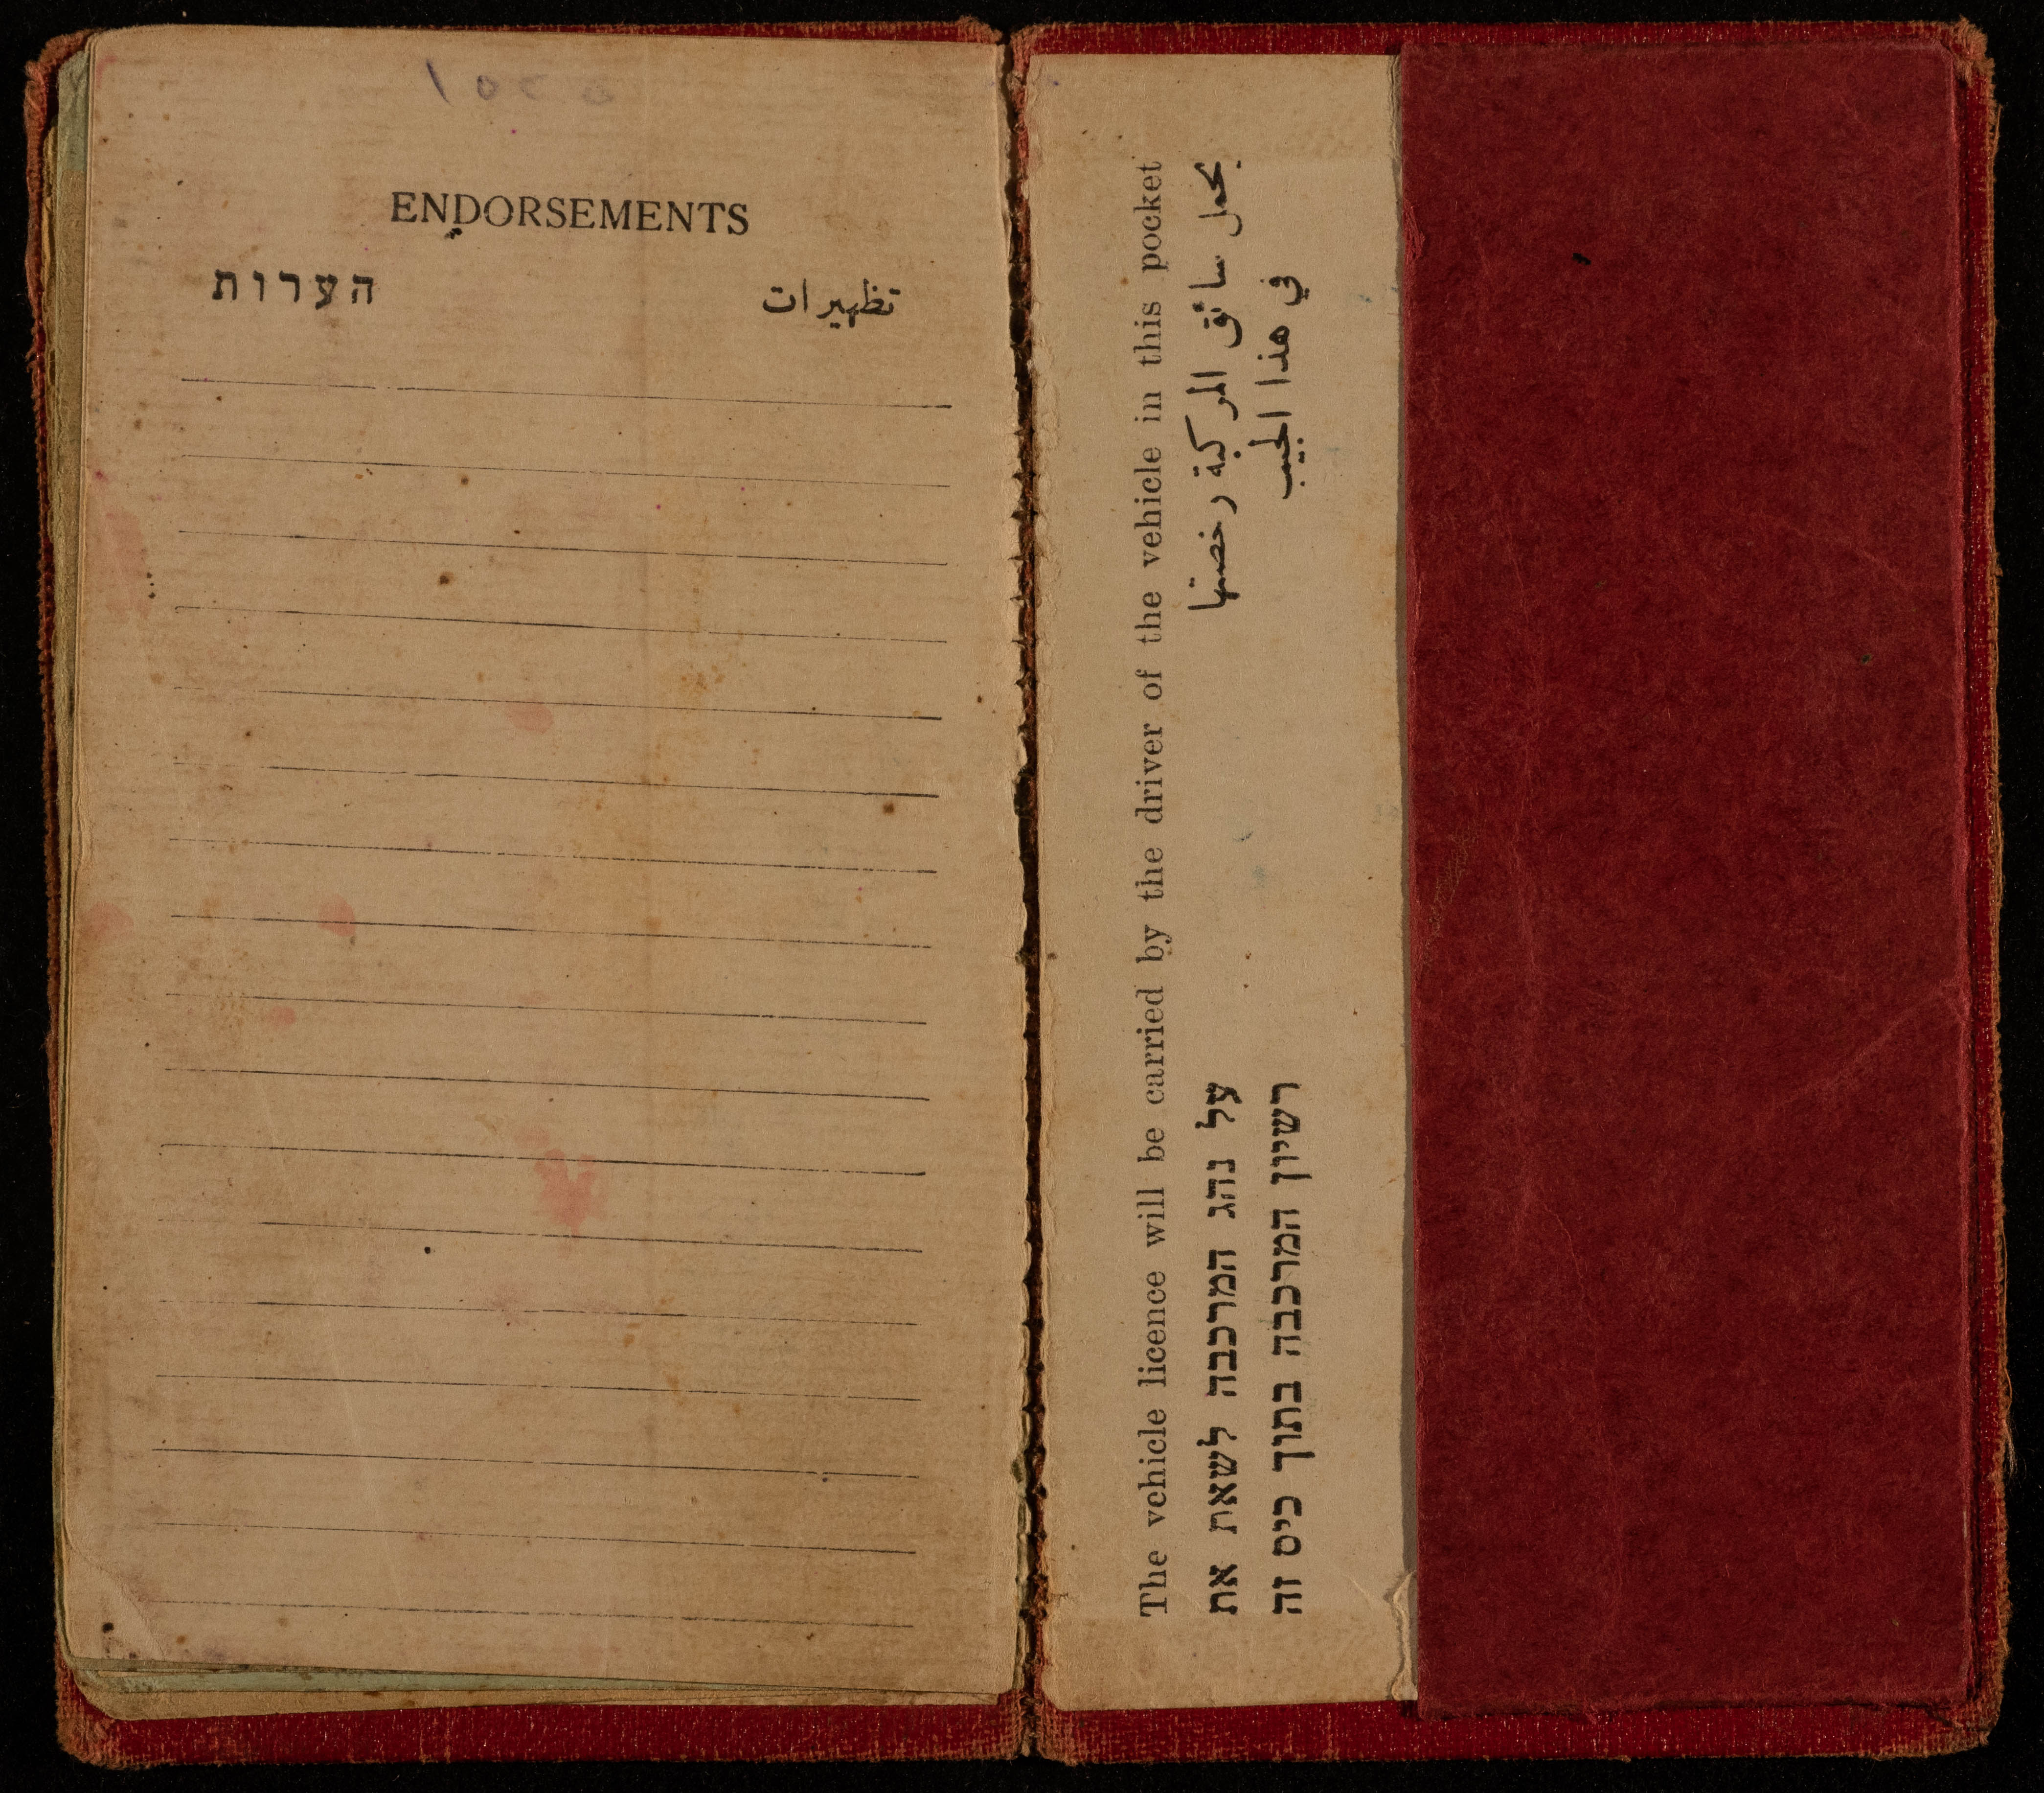 ENDORSEMENTS
הערות تظهيرات
The vehicle licence will be carried by the driver of the vehicle in this pocket
يحمل سائق المركبة رخصتها
في هذا الجيب
על נהג המרכבה לשאת את
רשיון המרכבה בתוך כיס זה